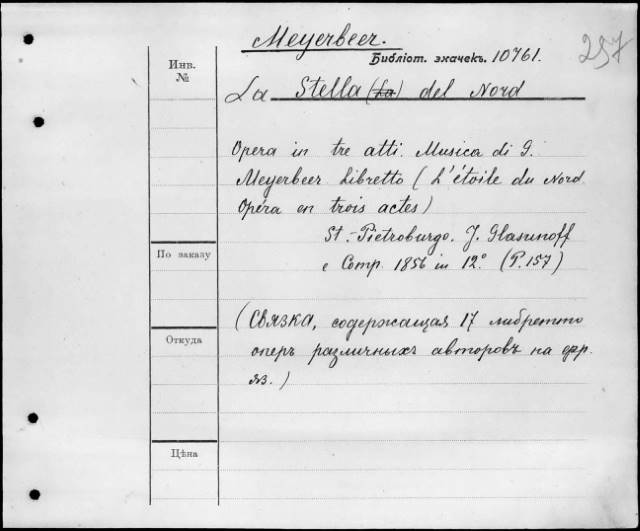 Meyerbeer.
Библіот. эхачекъ. 10761.
257
Инв.
№
La Stella (La) del Nord
Opera in tre atti. Musica di G.
Meyerbeer Libretto (L'étoile du Nord
Opéra en trois actes)
St.-Pietroburgo. J. Glasunoff
e Comp. 1856 in 12° (P. 157)
По заказу
(Связка, содержащая 17 либретто
Откуда
оперъ различныхъ авторовъ на фр.
яз.)
Цѣна